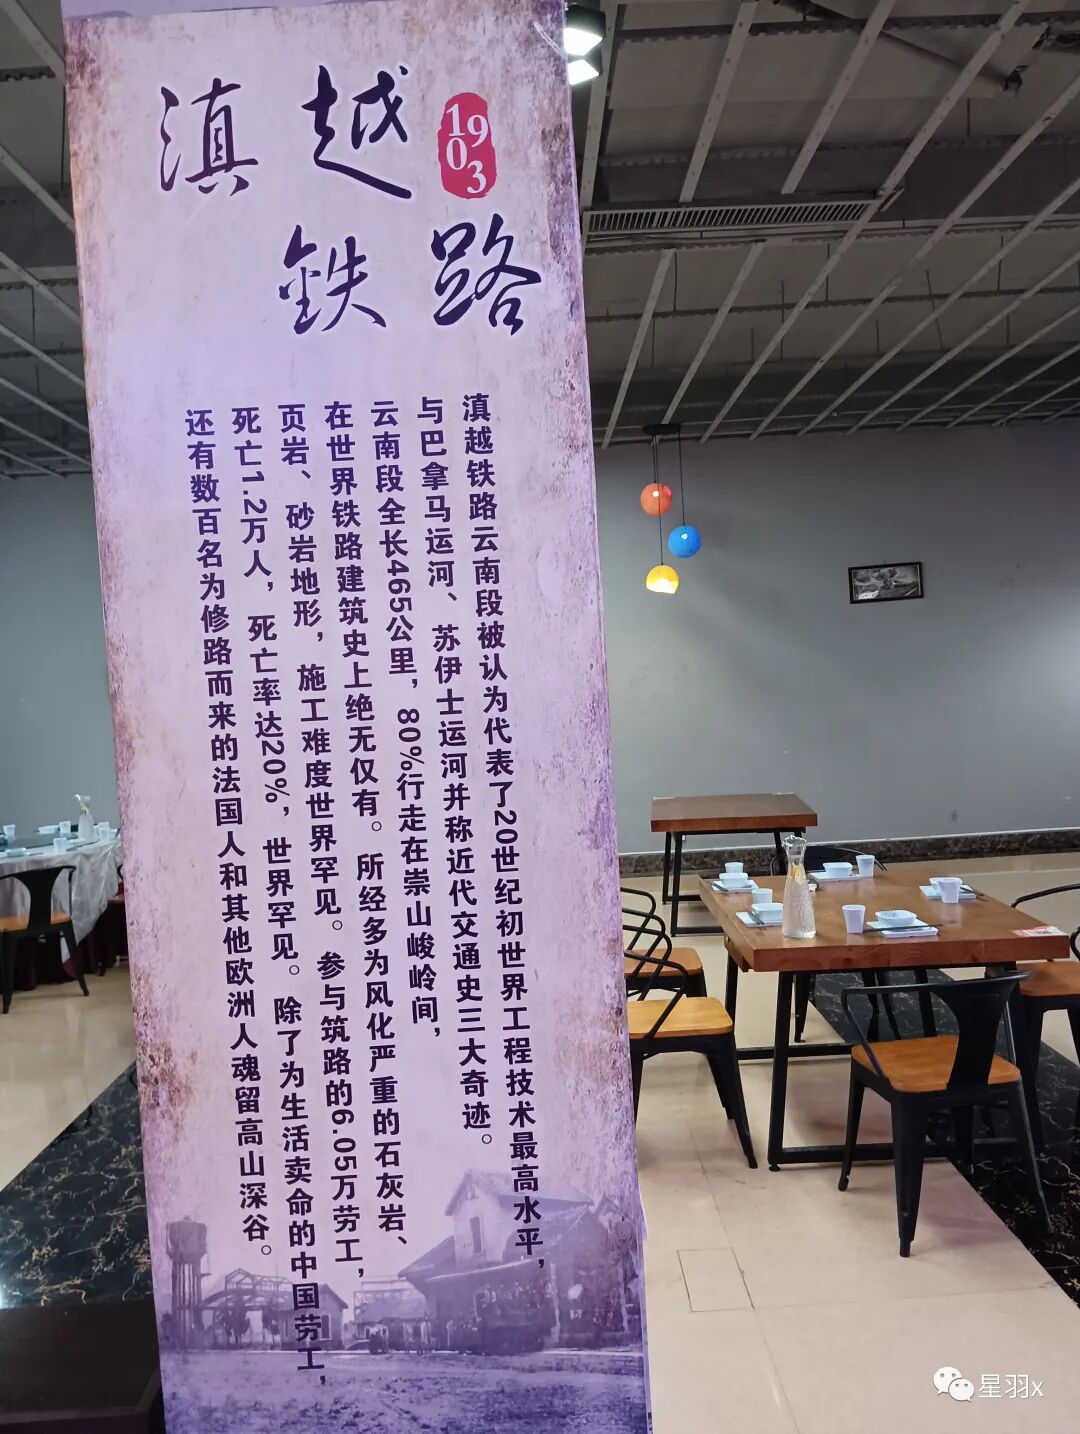 滇越
1903
鉄路
滇越铁路云南段被认为代表了20世纪初世界工程技术最高水平，
与巴拿马运河、苏伊士运河并称近代交通史三大奇迹。
云南段全长465公里，80%行走在崇山峻岭间，
在世界铁路建筑史上绝无仅有。所经多为风化严重的石灰岩、
页岩、砂岩地形，施工难度世界罕见。参与筑路的6.05万劳工，
死亡1.2万人，死亡率达20%，世界罕见。除了为生活卖命的中国劳工，
还有数百名为修路而来的法国人和其他欧洲人魂留高山深谷。
星羽x